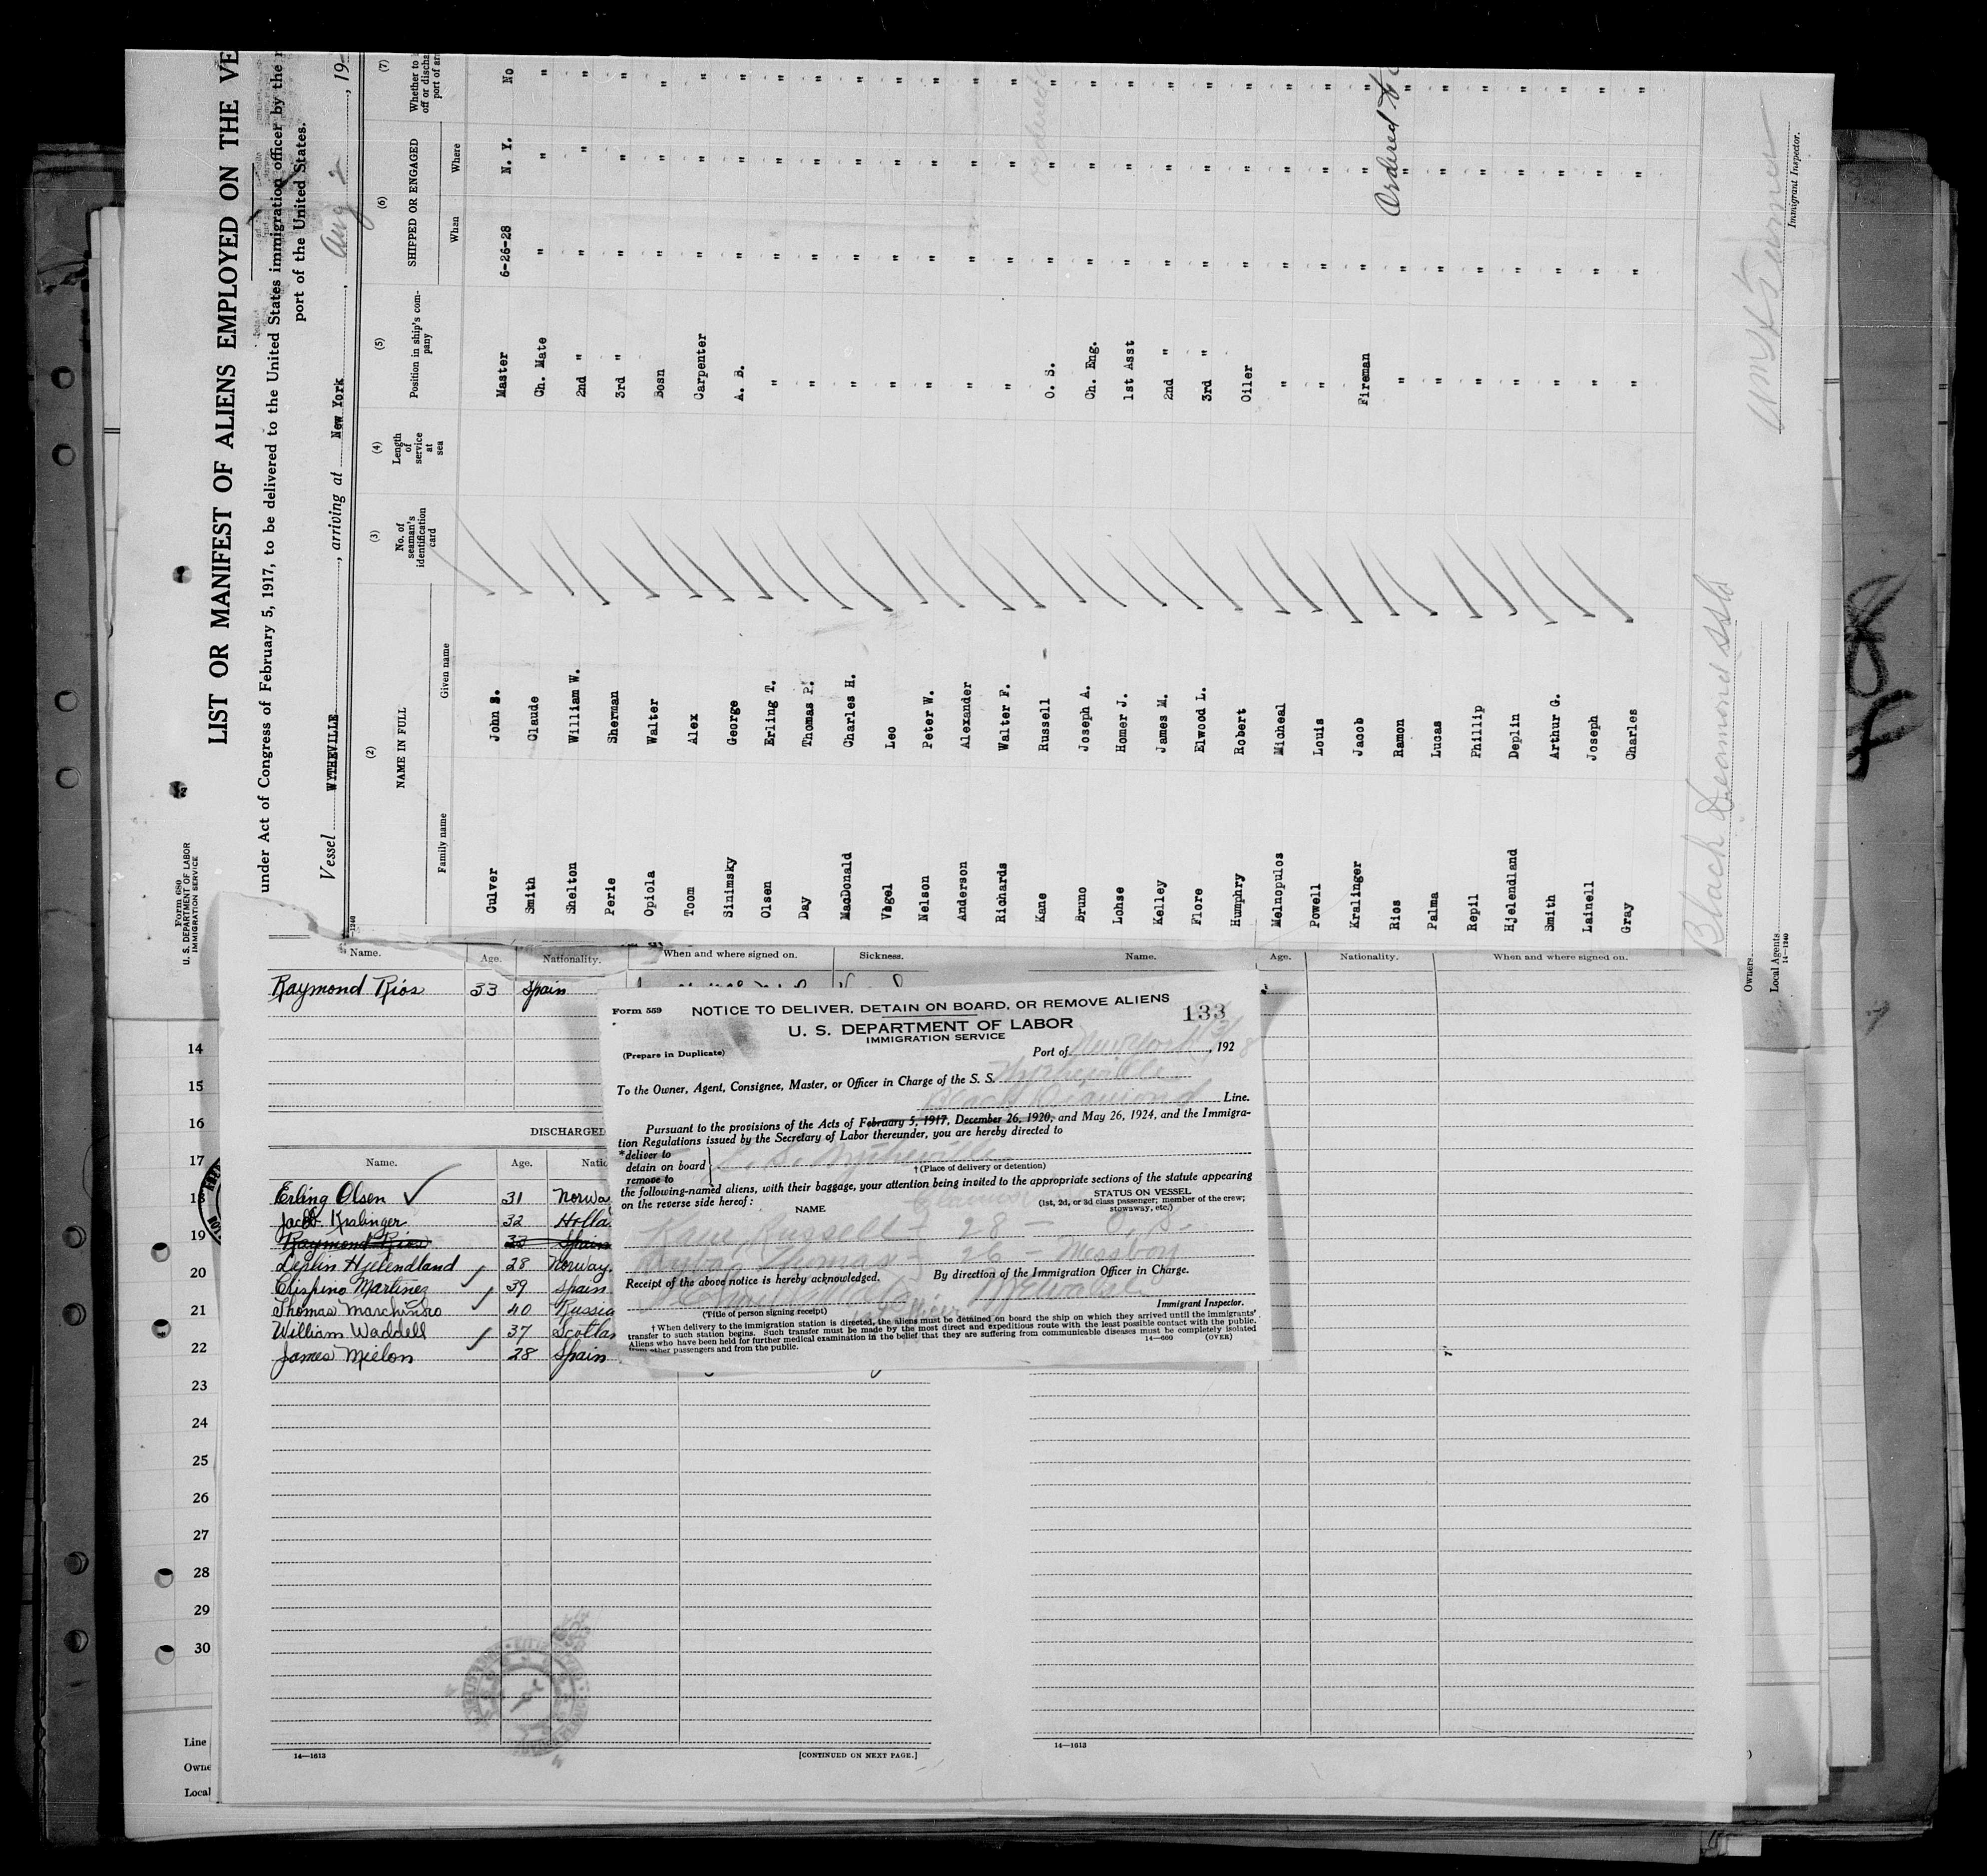 Form 680
U. S. DEPARTMENT OF LABOR
IMMIGRATION SERVICE
LIST OR MANIFEST OF ALIENS EMPLOYED ON THE VE
under Act of Congress of February 5, 1917, to be delivered to the United States immigration officer by the r
port of the United States.
Vessel WYTHEVILLE, arriving at New York, Aug 2, 19
(2) (3) (4) (5) (6) (7)
NAME IN FULL
Family name Given name
No. of seaman's identification card
Length of service at sea
Position in ship's company
SHIPPED OR ENGAGED
When Where
Whether to
off or discha
port of ar
Culver John S. Master 6-26-28 N. Y. No
Smith Claude Ch. Mate " " "
Shelton William W. 2nd " " " "
Perie Sherman 3rd " " " "
Opiola Walter Bosn " " "
Toom Alex Carpenter " " "
Sinimsky George A. B. " " "
Olsen Erling T. " " " "
Day Thomas P. " " " "
MacDonald Charles H. " " " "
Vogel Leo " " " "
Nelson Peter W. " " " "
Anderson Alexander " " " "
Richards Walter F. " " " "
Kane Russell O. S. " " "
Bruno Joseph A. Ch. Eng. " " "
Lohse Homer J. 1st Asst " " "
Kelley James M. 2nd " " " "
Flore Elwood L. 3rd " " " "
Humphry Robert Oiler " " "
Melnopulos Micheal " " " "
Powell Louis " " " "
Kralinger Jacob Fireman " " "
Rios Ramon " " " "
Palma Lucas " " " "
Repil Phillip " " " "
Hjelendland Deplin " " " "
Smith Arthur G. " " " "
Lainell Joseph " " " "
Gray Charles " " " "
Ordered to
Black Diamond SSLo
Owners
Local Agents
14-1240
Immigrant Inspector.
Name. Age. Nationality. When and where signed on. Sickness.
Raymond Rios 33 Spain
Name. Age. Nationality. When and where signed on.
DISCHARGED
Name. Age. Natio
Erling Olsen 31 Norwa
Jacob Kralinger 32 Holla
Raymond Rios 33 Spain
Deplin Hjelendland 28 Norway.
Crispino Martinez 39 Spain
Thomas Marchinko 40 Russia
William Waddell 37 Scotlan
James Mielon 28 Spain
14—1613
[CONTINUED ON NEXT PAGE.]
14—1613
Form 559 NOTICE TO DELIVER, DETAIN ON BOARD, OR REMOVE ALIENS 133
U. S. DEPARTMENT OF LABOR
IMMIGRATION SERVICE
(Prepare in Duplicate)
Port of New York, 1928
To the Owner, Agent, Consignee, Master, or Officer in Charge of the S. S. Wytheville
Black Diamond Line.
Pursuant to the provisions of the Acts of February 5, 1917, December 26, 1920, and May 26, 1924, and the Immigra-
tion Regulations issued by the Secretary of Labor thereunder, you are hereby directed to
*deliver to
detain on board
remove to
S. S. Wytheville
†(Place of delivery or detention)
the following-named aliens, with their baggage, your attention being invited to the appropriate sections of the statute appearing
on the reverse side hereof:
NAME
STATUS ON VESSEL
(1st, 2d, or 3d class passenger; member of the crew;
stowaway, etc.)
Kane, Russell - 28 - O. S.
Thomas - 26 - Messboy
Receipt of the above notice is hereby acknowledged.
By direction of the Immigration Officer in Charge.
1st Officer
(Title of person signing receipt)
Immigrant Inspector.
†When delivery to the immigration station is directed, the aliens must be detained on board the ship on which they arrived until the immigrants'
transfer to such station begins. Such transfer must be made by the most direct and expeditious route with the least possible contact with the public.
Aliens who have been held for further medical examination in the belief that they are suffering from communicable diseases must be completely isolated
from other passengers and from the public.
14—600 (OVER)
14
15
16
17
18
19
20
21
22
23
24
25
26
27
28
29
30
Line
Owne
Local